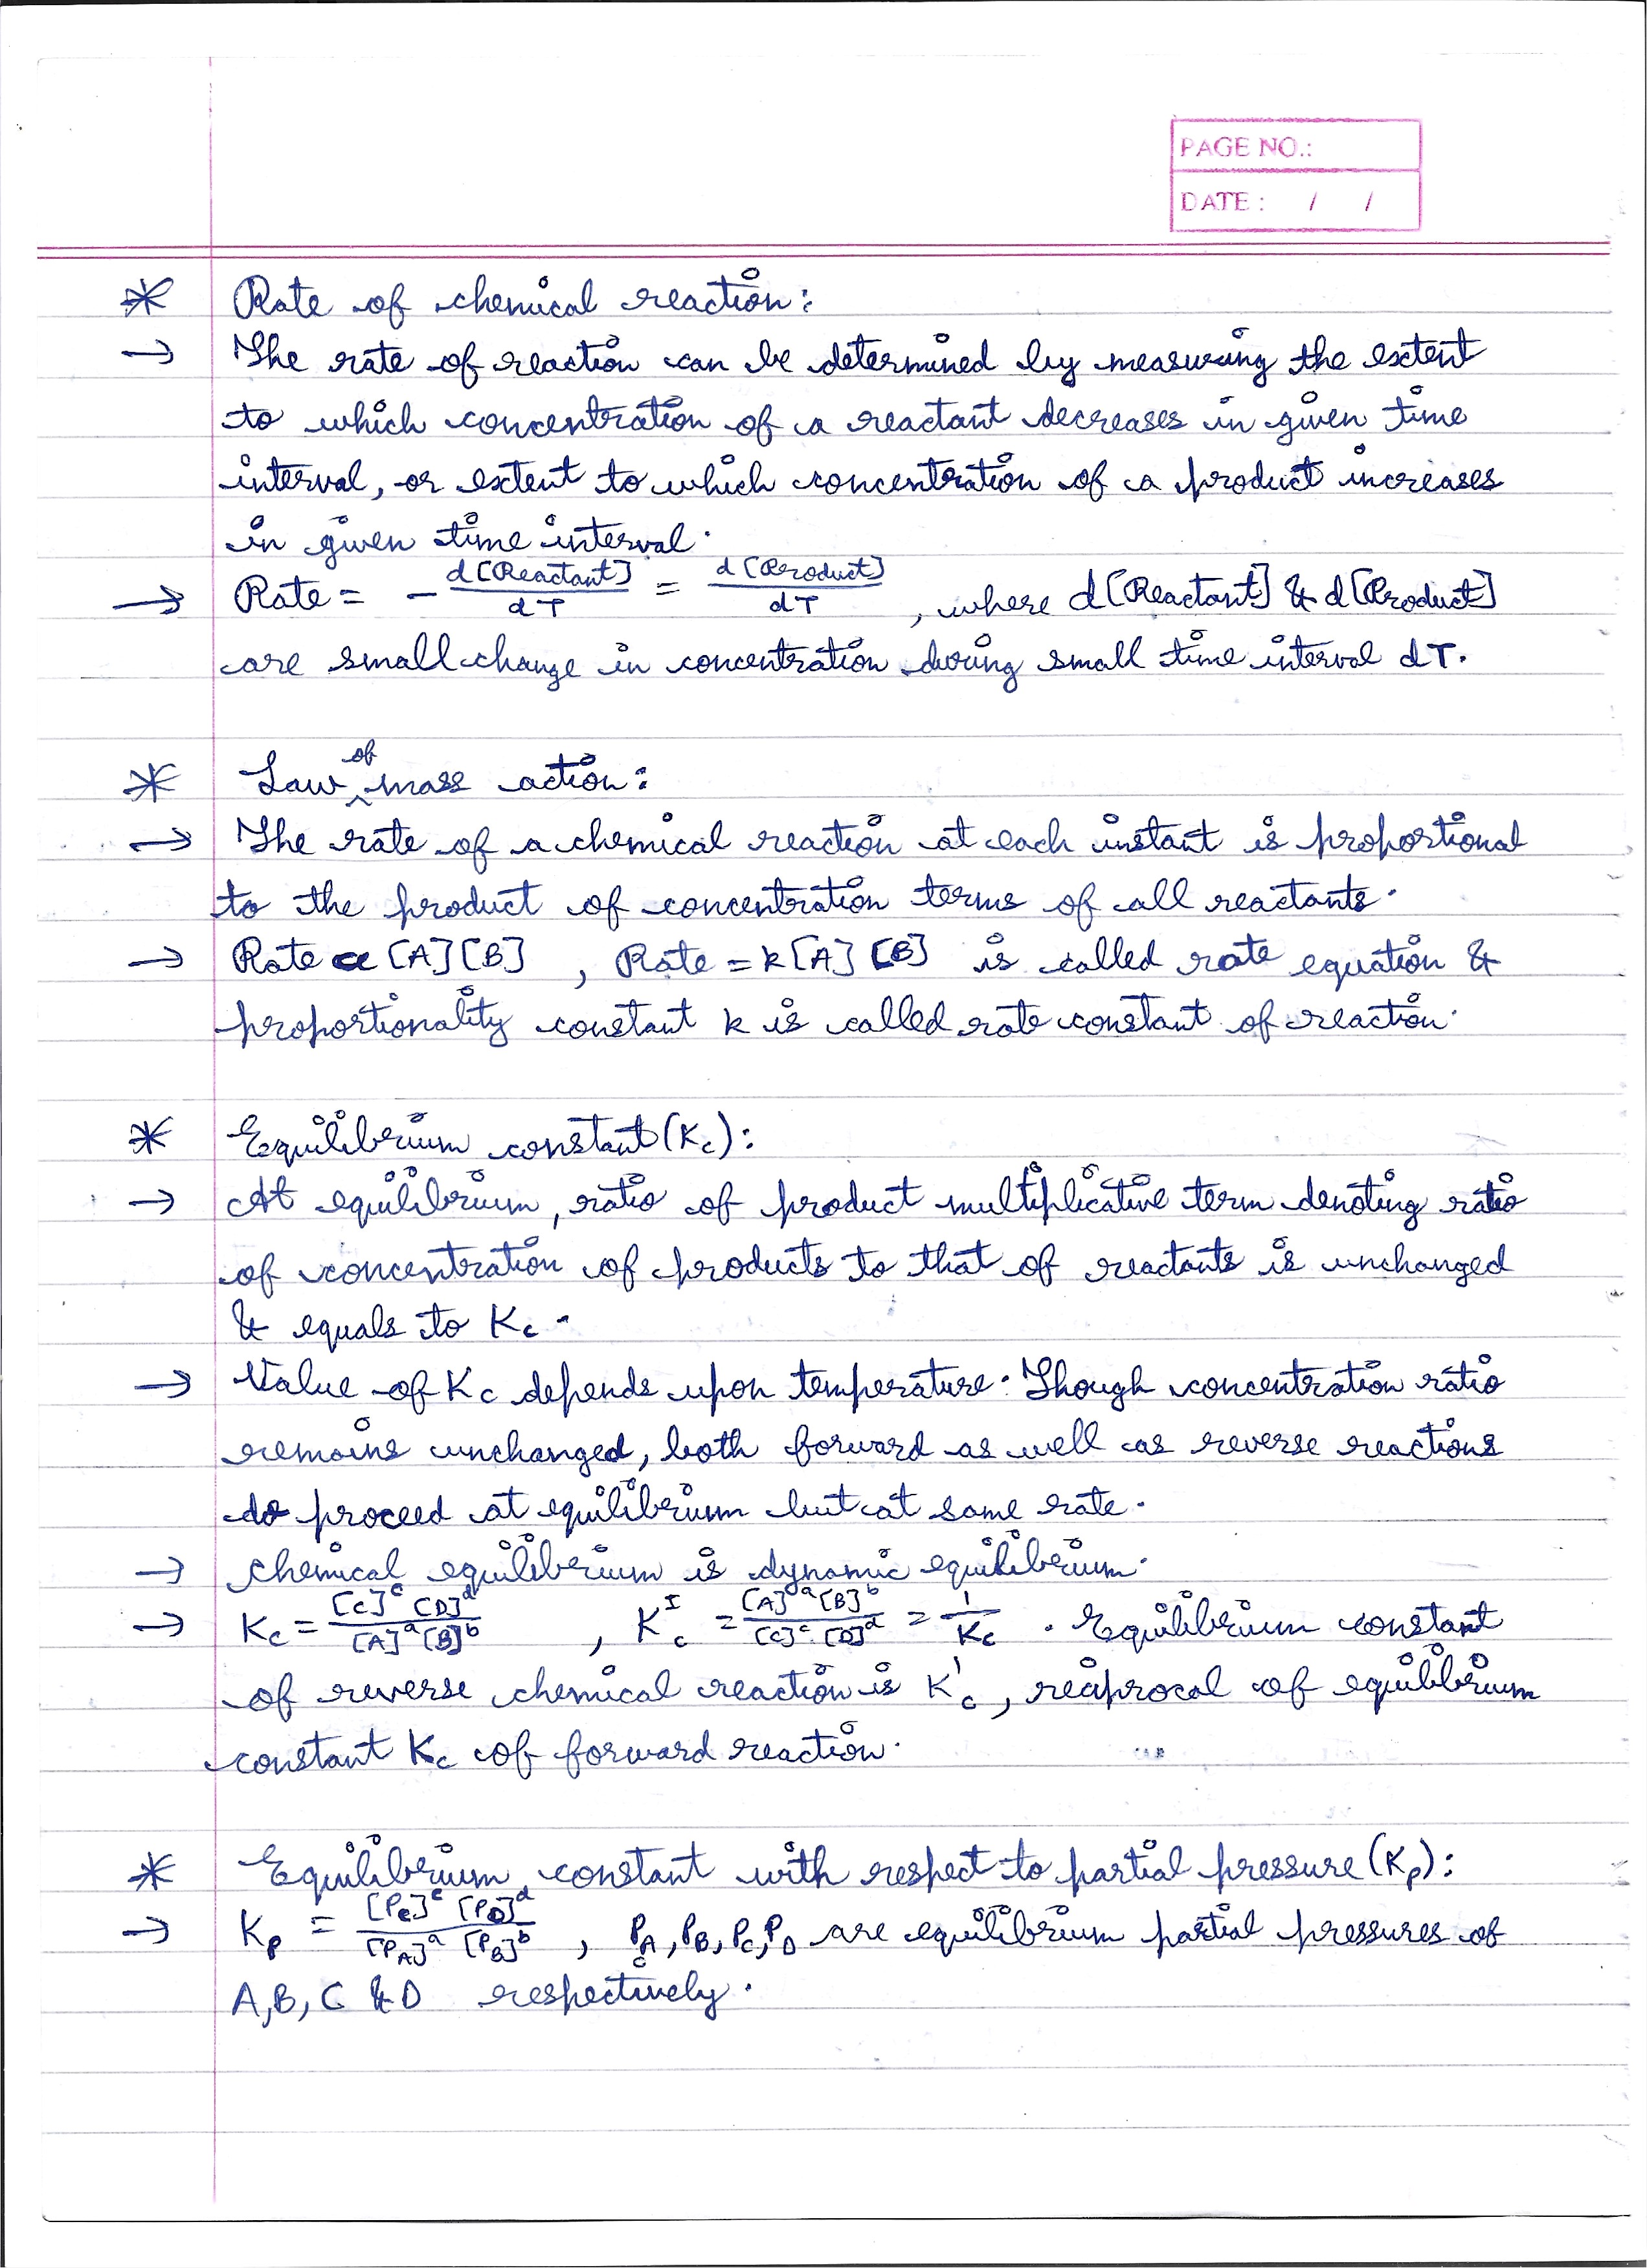 PAGE NO.:
DATE : / /
* Rate of chemical reaction:
→ The rate of reaction can be determined by measuring the extent
to which concentration of a reactant decreases in given time
interval, or extent to which concentration of a product increases
in given time interval.
→ Rate = - d[Reactant]/dT = d[Product]/dT , where d[Reactant] & d[Product]
are small change in concentration during small time interval dT.
* Law of mass action:
→ The rate of a chemical reaction at each instant is proportional
to the product of concentration terms of all reactants.
→ Rate ∝ [A][B] , Rate = k[A][B] is called rate equation &
proportionality constant k is called rate constant of reaction.
* Equilibrium constant (Kc):
→ At equilibrium, ratio of product multiplicative term denoting ratio
of concentration of products to that of reactants is unchanged
& equals to Kc.
→ Value of Kc depends upon temperature. Though concentration ratio
remains unchanged, both forward as well as reverse reactions
do proceed at equilibrium but at same rate.
→ Chemical equilibrium is dynamic equilibrium.
→ Kc = [C]^c [D]^d / [A]^a [B]^b , K'c = [A]^a [B]^b / [C]^c [D]^d = 1/Kc . Equilibrium constant
of reverse chemical reaction is K'c, reciprocal of equilibrium
constant Kc of forward reaction.
* Equilibrium constant with respect to partial pressure (Kp):
→ Kp = [PC]^c [PD]^d / [PA]^a [PB]^b , PA, PB, PC, PD are equilibrium partial pressures of
A, B, C & D respectively.